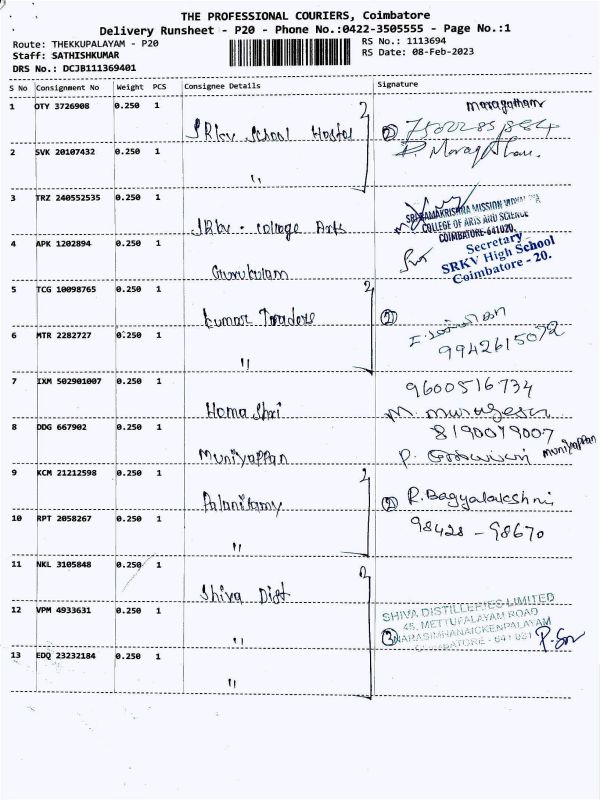 THE PROFESSIONAL COURIERS, Coimbatore
Delivery Runsheet - P20 - Phone No.:0422-3505555 - Page No.:1
Route: THEKKUPALAYAM - P20
RS No.: 1113694
Staff: SATHISHKUMAR
RS Date: 08-Feb-2023
DRS No.: DCJB111369401
S No Consignment No Weight PCS Consignee Details Signature
1 OTY 3726908 0.250 1
SRkv School Hostel 2
Maragatham
2 SVK 20107432 0.250 1
"
3 TRZ 240552535 0.250 1
SRkv - college Arts
SRI RAMAKRISHNA MISSION
COLLEGE OF ARTS AND SCIENCE
COIMBATORE-641020.
4 APK 1202894 0.250 1
Gurukulam
Secretary
SRKV High School
Coimbatore - 20.
5 TCG 10098765 0.250 1
kumar Traders 2
2
6 MTR 2282727 0.250 1
"
9942615072
7 IXM 502901007 0.250 1
Homa Shri
9600516734
M. murugesan
8 DDG 667902 0.250 1
Muniyappan
8190079007
muniyappan
9 KCM 21212598 0.250 1
Palanisamy 2
2 R. Bagyalakshmi
10 RPT 2058267 0.250 1
"
98428 - 98670
11 NKL 3105848 0.250 1
Shiva Dist
12 VPM 4933631 0.250 1
"
SHIVA DISTILLERIES LIMITED
45, METTUPALAYAM ROAD
3 NARASIMHANAICKENPALAYAM
COIMBATORE - 641 031
13 EDQ 23232184 0.250 1
"